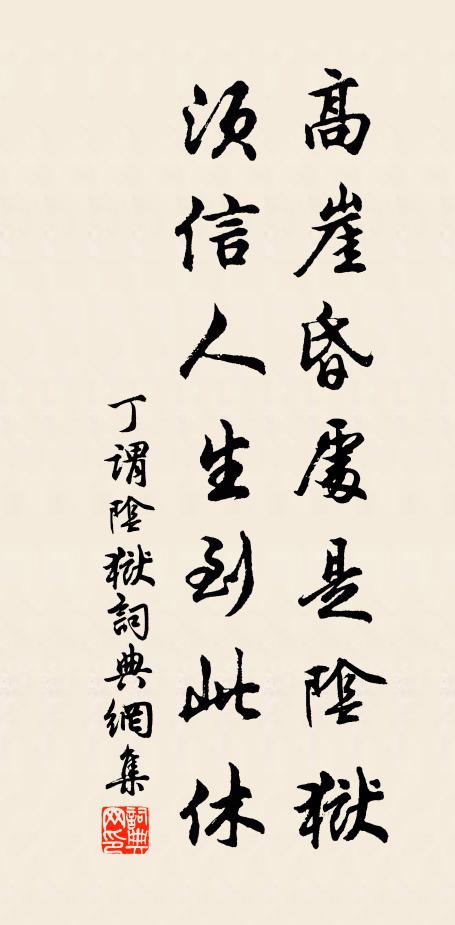 高崖昏處是陰獄
須信人生到此休
丁謂陰獄詞典網集
詞典網印